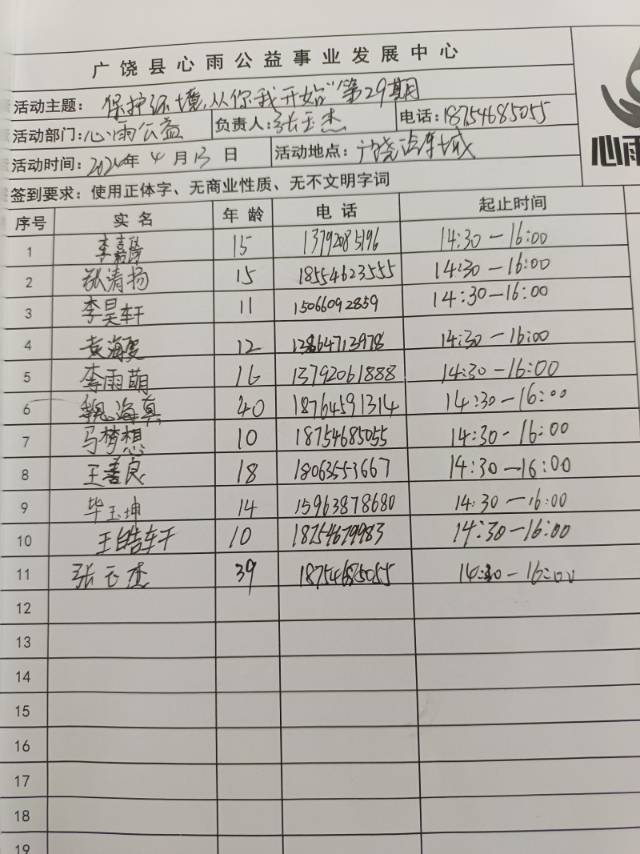 广饶县心雨公益事业发展中心
活动主题：保护环境，从你我开始"第29期
活动部门：心雨公益 负责人：张玉杰 电话：18754685055
活动时间：2024年4月13日 活动地点：广饶汽车城
心雨
签到要求：使用正体字、无商业性质、无不文明字词
序号 实名 年龄 电话 起止时间
1 李嘉 15 13792085196 14:30-16:00
2 张清扬 15 18554623555 14:30-16:00
3 李昊轩 11 15066092859 14:30-16:00
4 黄海 12 13864713978 14:30-16:00
5 李雨萌 16 13792061888 14:30-16:00
6 魏海真 40 18764591314 14:30-16:00
7 马梦想 10 18754685055 14:30-16:00
8 王善良 18 18063553667 14:30-16:00
9 毕玉坤 14 15963878680 14:30-16:00
10 王皓轩 10 18754679983 14:30-16:00
11 张玉杰 39 18754685055 14:30-16:00
12
13
14
15
16
17
18
19